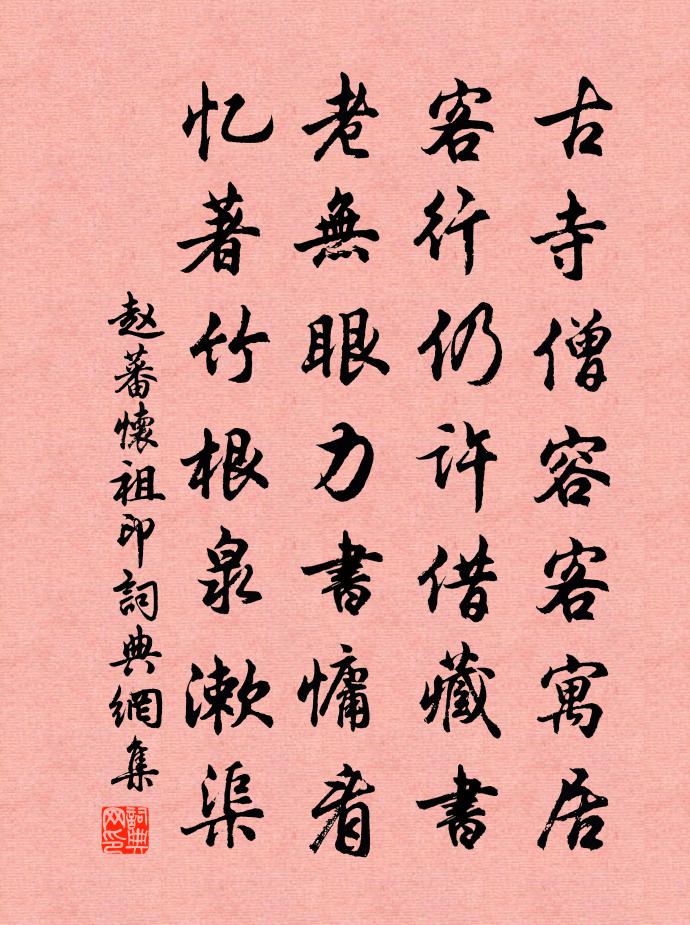 古寺僧容客寓居
客行仍许借藏書
老無眼力書慵看
忆著竹根泉漱渠
赵蕃懷祖印詞典網集
詞典网印